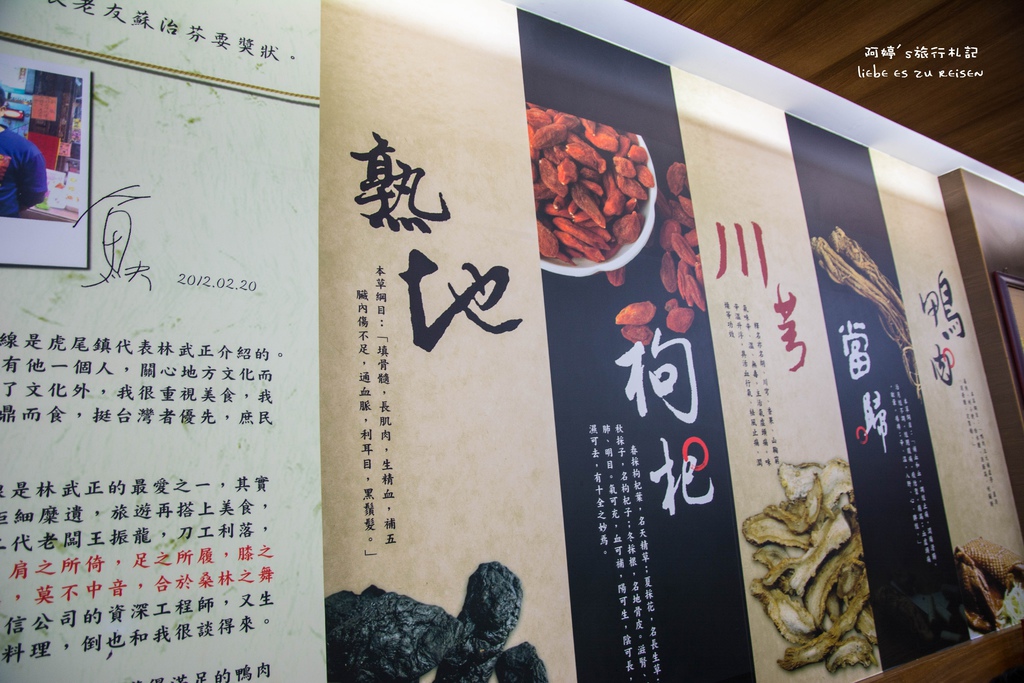 長老友蘇治芬要獎狀。
2012.02.20
線是虎尾鎮代表林武正介紹的。
有他一個人,關心地方文化而
了文化外,我很重視美食,我
鼎而食,挺台灣者優先,庶民
是林武正的最愛之一,其實
巨細糜遺,旅遊再搭上美食,
二代老闆王振龍,刀工利落,
肩之所倚,足之所履,膝之
,莫不中音,合於桑林之舞
信公司的資深工程師,又生
料理,倒也和我很談得來。
得滿足的鴨肉
熟地
本草綱目:「填骨髓,長肌肉,生精血,補五
臟內傷不足,通血脈,利耳目,黑鬚髮。」
枸杞
春採枸杞葉,名天精草;夏採花,名長生草,
秋採子,名枸杞子;冬採根,名地骨皮。滋腎、
肺、明目。氣可充,血可補,陽可生,陰可長,
濕可去,有十全之妙焉。
川芎
當歸
鴨肉
阿婷's旅行札記
LIEBE ES ZU REISEN